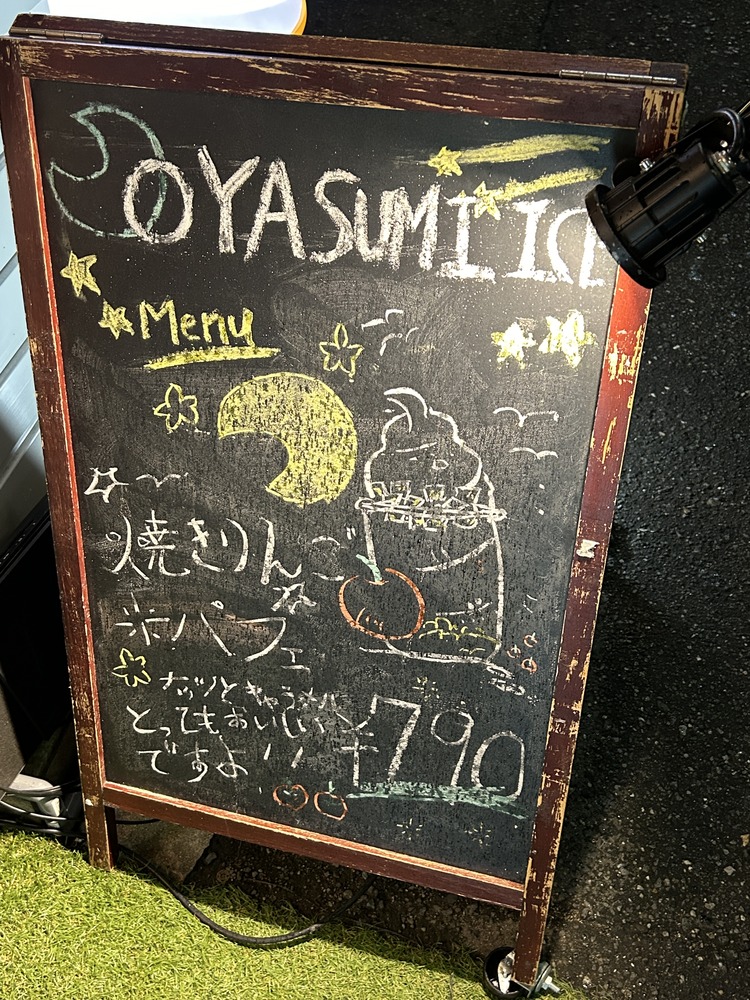 OYASUMI
Menu
焼きりんご
パフェ
ナッツとキャラメル
とってもおいしい
ですよ!!
¥790